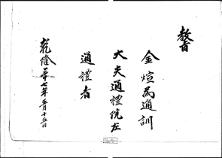 教旨
金煊爲通訓
大夫通禮院左
通禮者
乾隆二十七年五月十五日